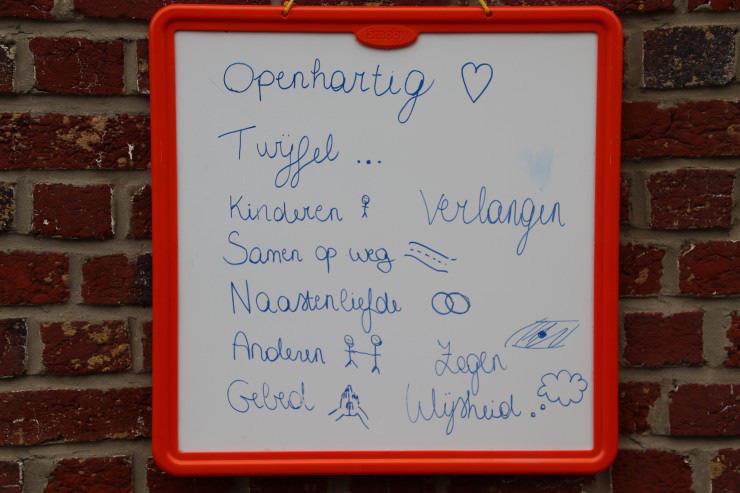 Openhartig
Twijfel ...
Kinderen
Verlangen
Samen op weg
Naastenliefde
Anderen
Zegen
Gebed
Wijsheid